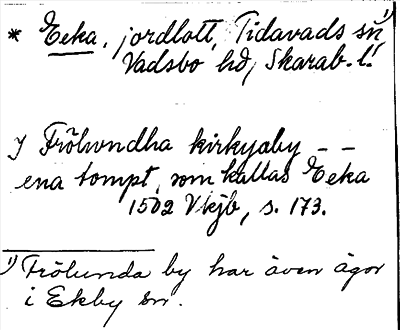 * Eeka, jordlott, Tidavads sn 1)
Vadsbo hd, Skarab. l.
J Frölwndha kirkyaby – –
ena tompt, som kallas Eeka
1502 Vkjb, s. 173.
1) Frölunda by har även ägor
i Ekby sn.